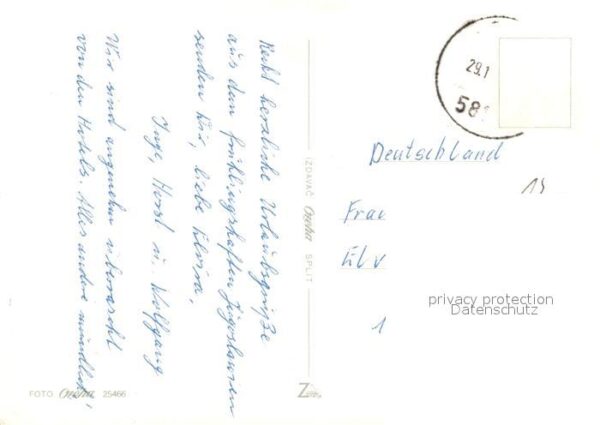 Recht herzliche Urlaubsgrüße
aus dem frühlingshaften Jugoslawien
senden Dir, liebe Elvira,
Inge, Horst u. Wolfgang
Wir sind angenehm überrascht
von den Hotels. Alles andere mündlich!
IZDAVAČ SPLIT
FOTO 25466
29.1
58
Deutschland
Frau
Elv
1
privacy protection
Datenschutz